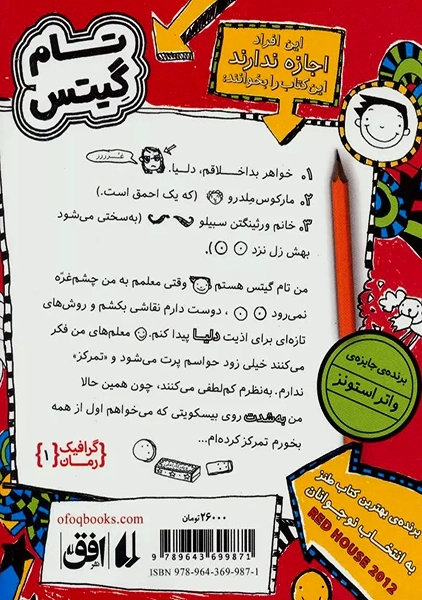 تام
گیتس
این افراد
اجازه ندارند
این کتاب را بخوانند:
غـــررررر
۱. خواهر بداخلاقم، دلیا.
۲. مارکوس مِلدرو (که یک احمق است.)
۳. خانم ورثینگتن سبیلو (به‌سختی می‌شود
بهش زل نزد).
من تام گیتس هستم وقتی معلمم به من چشم‌غرّه
نمی‌رود، دوست دارم نقاشی بکشم و روش‌های
تازه‌ای برای اذیت دلیا پیدا کنم. معلم‌های من فکر
می‌کنند خیلی زود حواسم پرت می‌شود و «تمرکز»
ندارم. به‌نظرم کم‌لطفی می‌کنند، چون همین حالا
من به‌شدت روی بیسکویتی که می‌خواهم اول از همه
بخورم تمرکز کرده‌ام...
برنده‌ی جایزه‌ی
واتر استونز
برنده‌ی بهترین کتاب طنز
به انتخاب نوجوانان
RED HOUSE 2012
گرافیک
رمان
{۱}
ofoqbooks.com
۲۶۰۰۰ تومان
نشر افق
9 789643 699871
ISBN 978-964-369-987-1